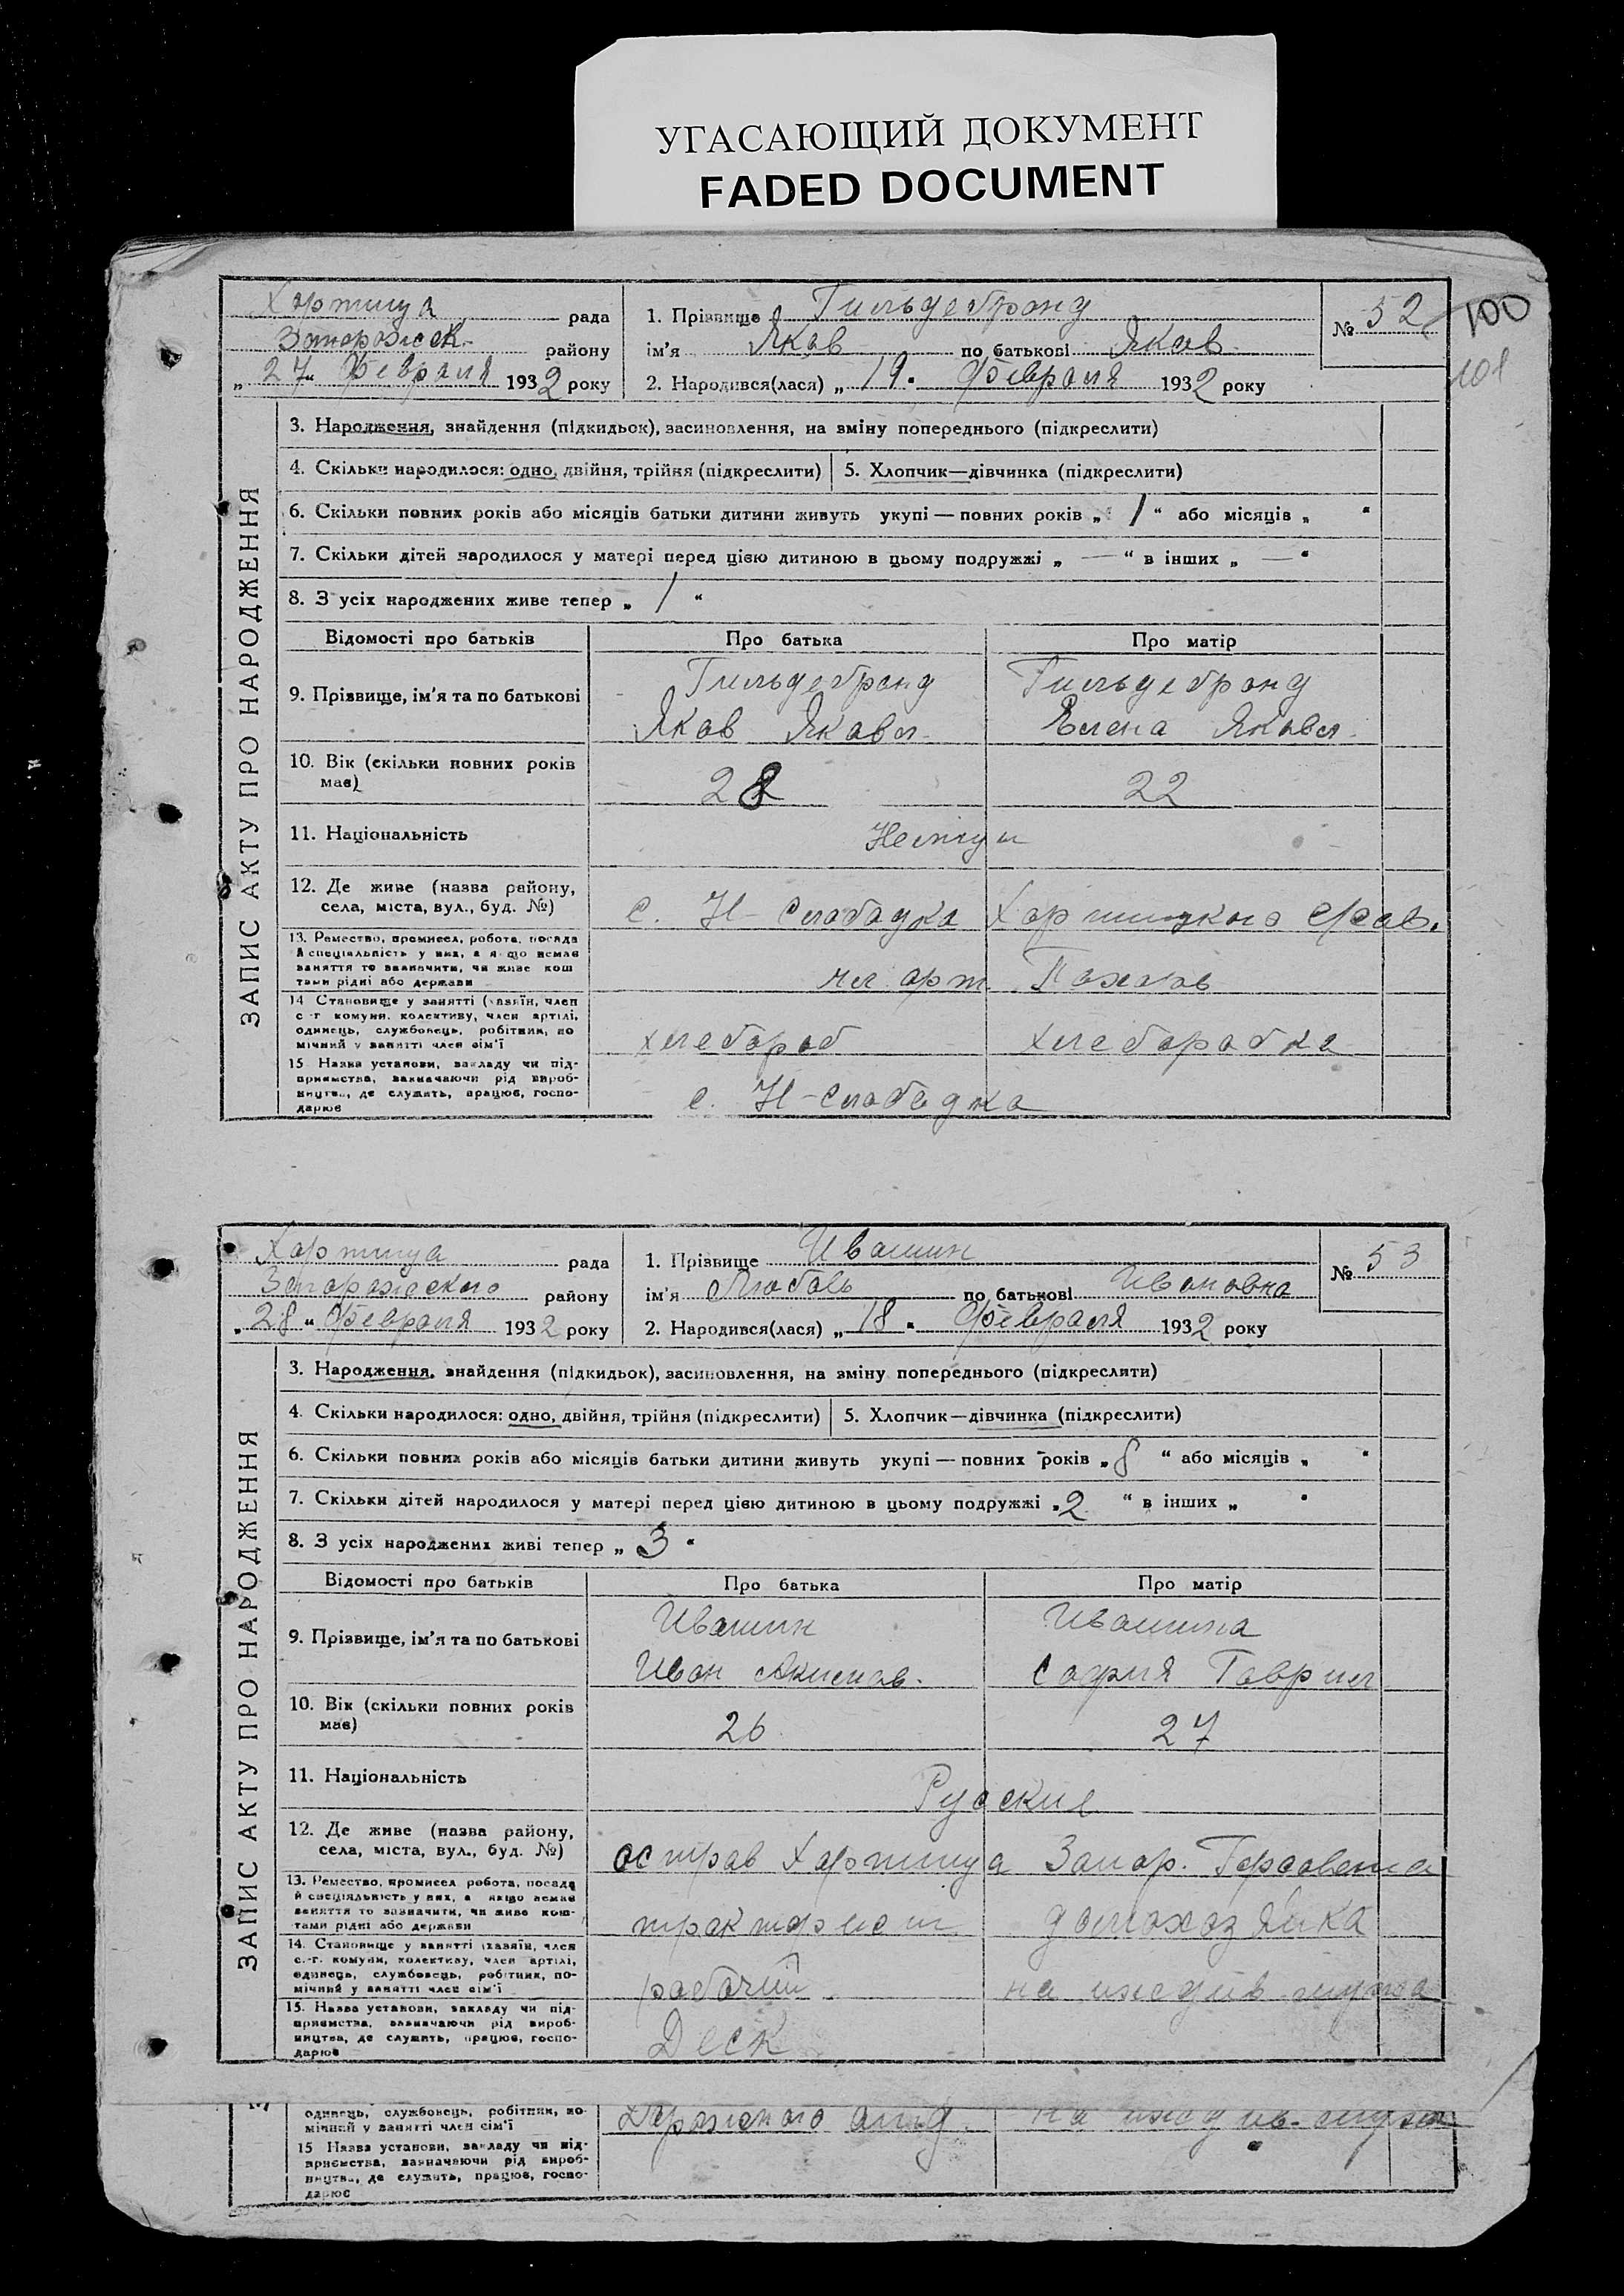 УГАСАЮЩИЙ ДОКУМЕНТ
FADED DOCUMENT
Хортица рада
Запорожск. районy
„27“ Февраля 1932 року
1. Прізвище Гильдебранд
ім’я Яков по батькові Яков.
2. Народився(лася) „19“ Февраля 1932 року
№ 52
100
101
ЗАПИС АКТУ ПРО НАРОДЖЕННЯ
3. Народження, знайдення (підкидьок), засиновлення, на зміну попереднього (підкреслити)
4. Скільки народилося: одно, двійня, трійня (підкреслити) 5. Хлопчик—дівчинка (підкреслити)
6. Скільки повних років або місяців батьки дитини живуть укупі — повних років „ 1 “ або місяців „ “
7. Скільки дітей народилося у матері перед цією дитиною в цьому подружжі „ — “ в інших „ — “
8. З усіх народжених живе тепер „ 1 “
Відомості про батьків Про батька Про матір
9. Прізвище, ім’я та по батькові
Гильдебранд Гильдебранд
Яков Яковл. Елена Яковл.
10. Вік (скільки повних років має)
28 22
11. Національність
Немцы
12. Де живе (назва району, села, міста, вул., буд. №)
с. Н-Слободка Хортицкого с/сов.
13. Ремество, промисел, робота, посада й спеціяльність у них, а якщо немає заняття то зазначити, чи живе коштами рідні або держави
чл. арт.
14. Становище у занятті (хазяїн, член с.-г. комуни, колективу, член артілі, одинець, службовець, робітник, помічний у занятті член сім’ї
хлебороб хлеборобка
15. Назва установи, закладу чи підприємства, зазначаючи рід виробництва, де служить, працює, господарює
с. Н-Слободка
Хортица рада
Запорожского району
„28“ Февраля 1932 року
1. Прізвище Ивашин
ім’я Любовь по батькові Ивановна
2. Народився(лася) „18“ Февраля 1932 року
№ 53
ЗАПИС АКТУ ПРО НАРОДЖЕННЯ
3. Народження, знайдення (підкидьок), засиновлення, на зміну попереднього (підкреслити)
4. Скільки народилося: одно, двійня, трійня (підкреслити) 5. Хлопчик—дівчинка (підкреслити)
6. Скільки повних років або місяців батьки дитини живуть укупі — повних років „ 8 “ або місяців „ “
7. Скільки дітей народилося у матері перед цією дитиною в цьому подружжі „ 2 “ в інших „ “
8. З усіх народжених живі тепер „ 3 “
Відомості про батьків Про батька Про матір
9. Прізвище, ім’я та по батькові
Ивашин Ивашина
Иван София Гаврил
10. Вік (скільки повних років має)
26 27
11. Національність
Русские
12. Де живе (назва району, села, міста, вул., буд. №)
остров Хортица Запор. Горсовета
13. Ремество, промисел, робота, посада й спеціяльність у них, а якщо немає заняття то зазначити, чи живе коштами рідні або держави
тракторист домохозяйка
14. Становище у занятті (хазяїн, член с.-г. комуни, колективу, член артілі, одинець, службовець, робітник, помічний у занятті член сім’ї
рабочий на иждив мужа
15. Назва установи, закладу чи підприємства, зазначаючи рід виробництва, де служить, працює, господарює
одинець, службовець, робітник, помічний у занятті член сім’ї
на иждив. мужа
15 Назва установи, закладу чи підприємства, зазначаючи рід виробництва, де служить, працює, господарює